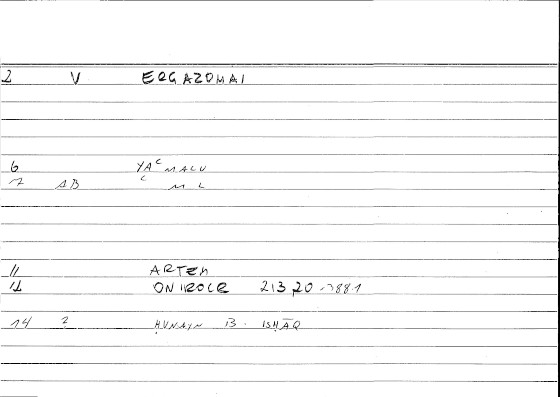 2 V ERGAZOMAI
6 YAᶜMALU
7 AB ᶜML
11 ARTEM
12 ONIROCR 213,20 -7881
14 2 ḤUNAYN B. ISḤĀQ